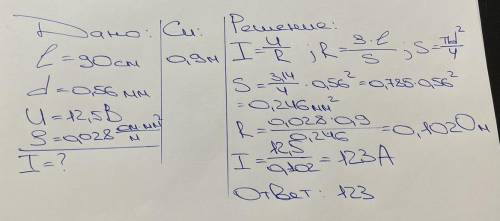 Дано:
l=90см
d=0,56мм
U=12,5В
ρ=0,028 Ом·мм²/м
I=?
Си:
0,9м
Решение:
I=U/R ; R=ρ·l/S ; S=πd²/4
S=3,14/4·0,56²=0,785·0,56²
=0,246мм²
R=0,028·0,9/0,246=0,102Ом
I=12,5/0,102=123А
Ответ: 123